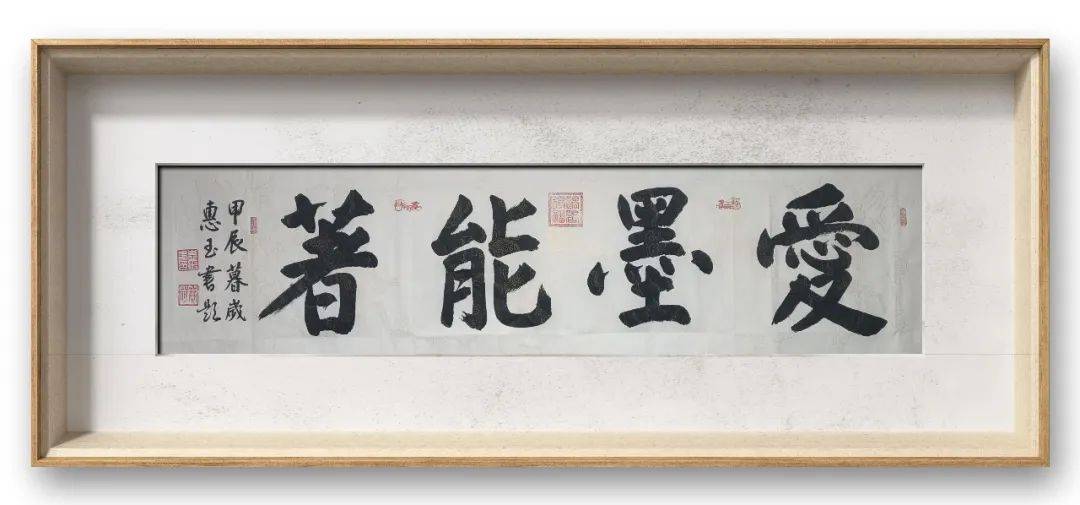 愛墨能著
甲辰暮歲
惠玉書題